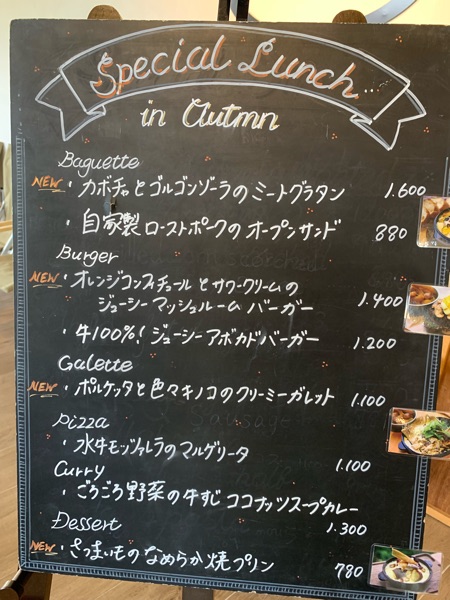 Special Lunch...
in Autmn
Baguette
NEW ・カボチャとゴルゴンゾーラのミートグラタン 1.600
・自家製ローストポークのオープンサンド 880
Burger
NEW ・オレンジコンフィチュールとサワークリームの
ジューシーマッシュルームバーガー 1.400
・牛100%!ジューシーアボカドバーガー 1.200
Galette
NEW ・ポルケッタと色々キノコのクリーミーガレット 1.100
Pizza
・水牛モッツァレラのマルゲリータ 1.100
Curry
・ごろごろ野菜の牛すじココナッツスープカレー
1.300
Dessert
NEW ・さつまいものなめらか焼プリン 780